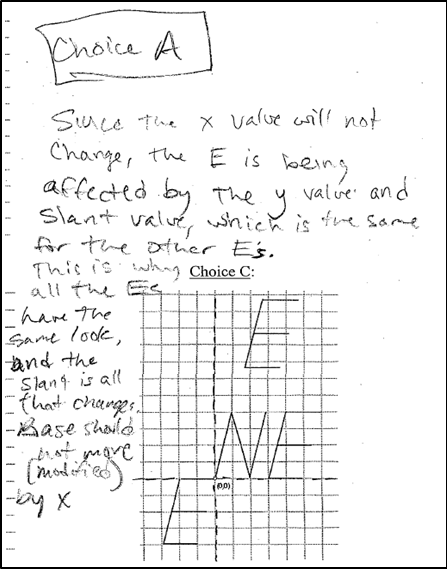 Choice A
Since the x value will not
Change, the E is being
affected by the y value and
Slant value, which is the same
for the other E's.
This is why
Choice C:
all the Es
have the
same look,
and the
slant is all
that changes.
Base should
not move
(modified)
by x
(0,0)